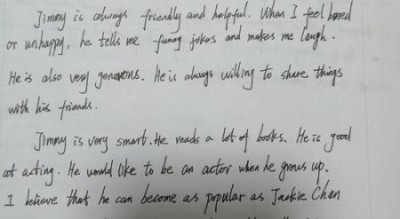 Jimmy is always friendly and helpful. When I feel bored
or unhappy, he tells me funny jokes and makes me laugh.
He is also very generous. He is always willing to share things
with his friends.
Jimmy is very smart. He reads a lot of books. He is good
at acting. He would like to be an actor when he grows up.
I believe that he can become as popular as Jackie Chen